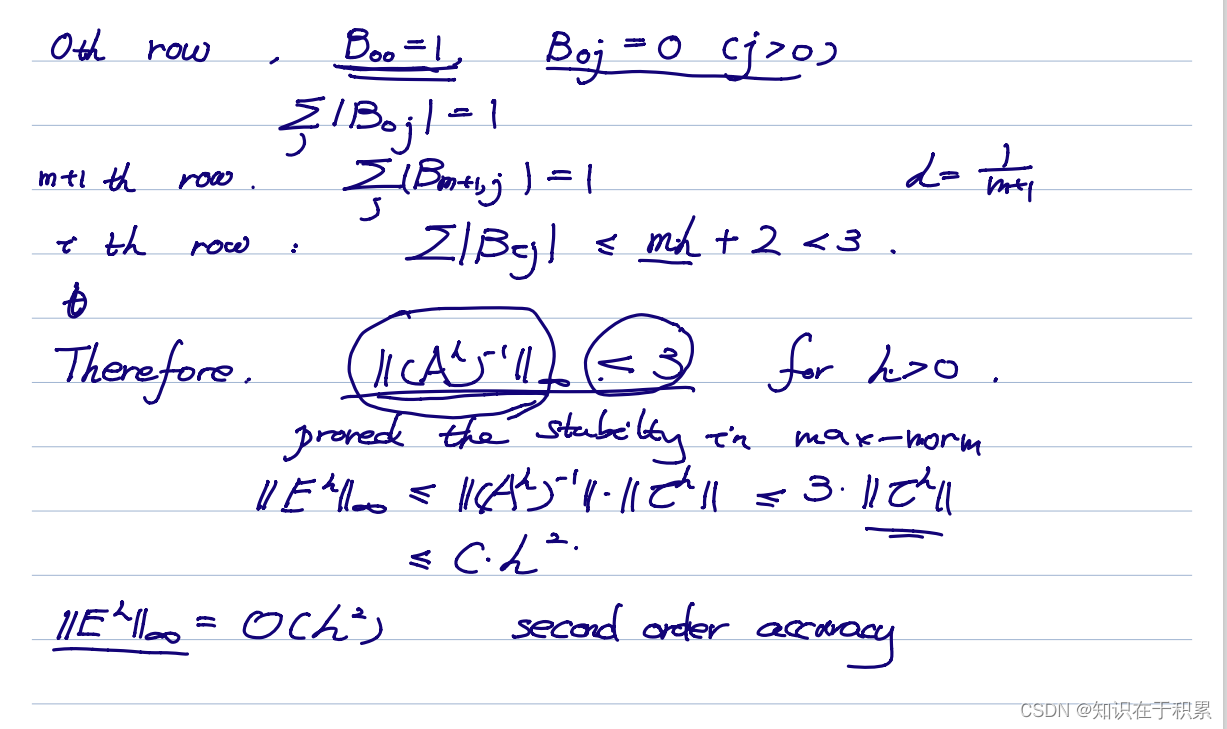 0th row, B₀₀ = 1, B₀ⱼ = 0 (j>0)
∑ⱼ |B₀ⱼ| = 1
m+1 th row. ∑ⱼ |Bₘ₊₁,ⱼ| = 1 h = 1/(m+1)
i th row : ∑|Bᵢⱼ| ≤ mh + 2 < 3 .
Therefore. ||(Aʰ)⁻¹||∞ ≤ 3 for h>0 .
proved the stability in max-norm
||Eʰ||∞ ≤ ||(Aʰ)⁻¹||·||τʰ|| ≤ 3·||τʰ||
≤ C·h².
||Eʰ||∞ = O(h²) second order accuracy
CSDN @知识在于积累